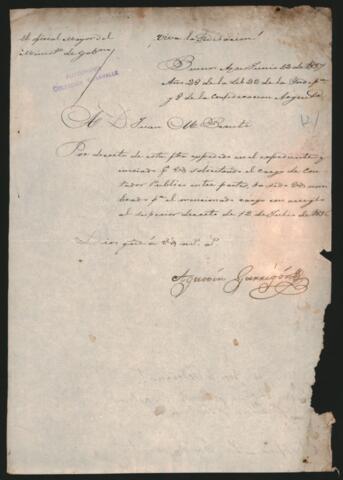 El oficial Mayor del
Minist.º de Gobno
¡Viva la Federacion!
Buenos Ayres Junio 22 de 1837
Año 28 de la Lib. 22 de la Indep.ª
y 8 de la Confederacion Argentina
A D. Juan M.
Por decreto de esta fha expedido en el expediente
iniciado p.r Vd solicitando el cargo de Con-
tador Publico entre partes, ha sido Vd nom-
brado p.ª el mencionado cargo con arreglo
al superior decreto de 12 de Julio de
Dios gue á Vd m.s a.s
Agustin Garrigós